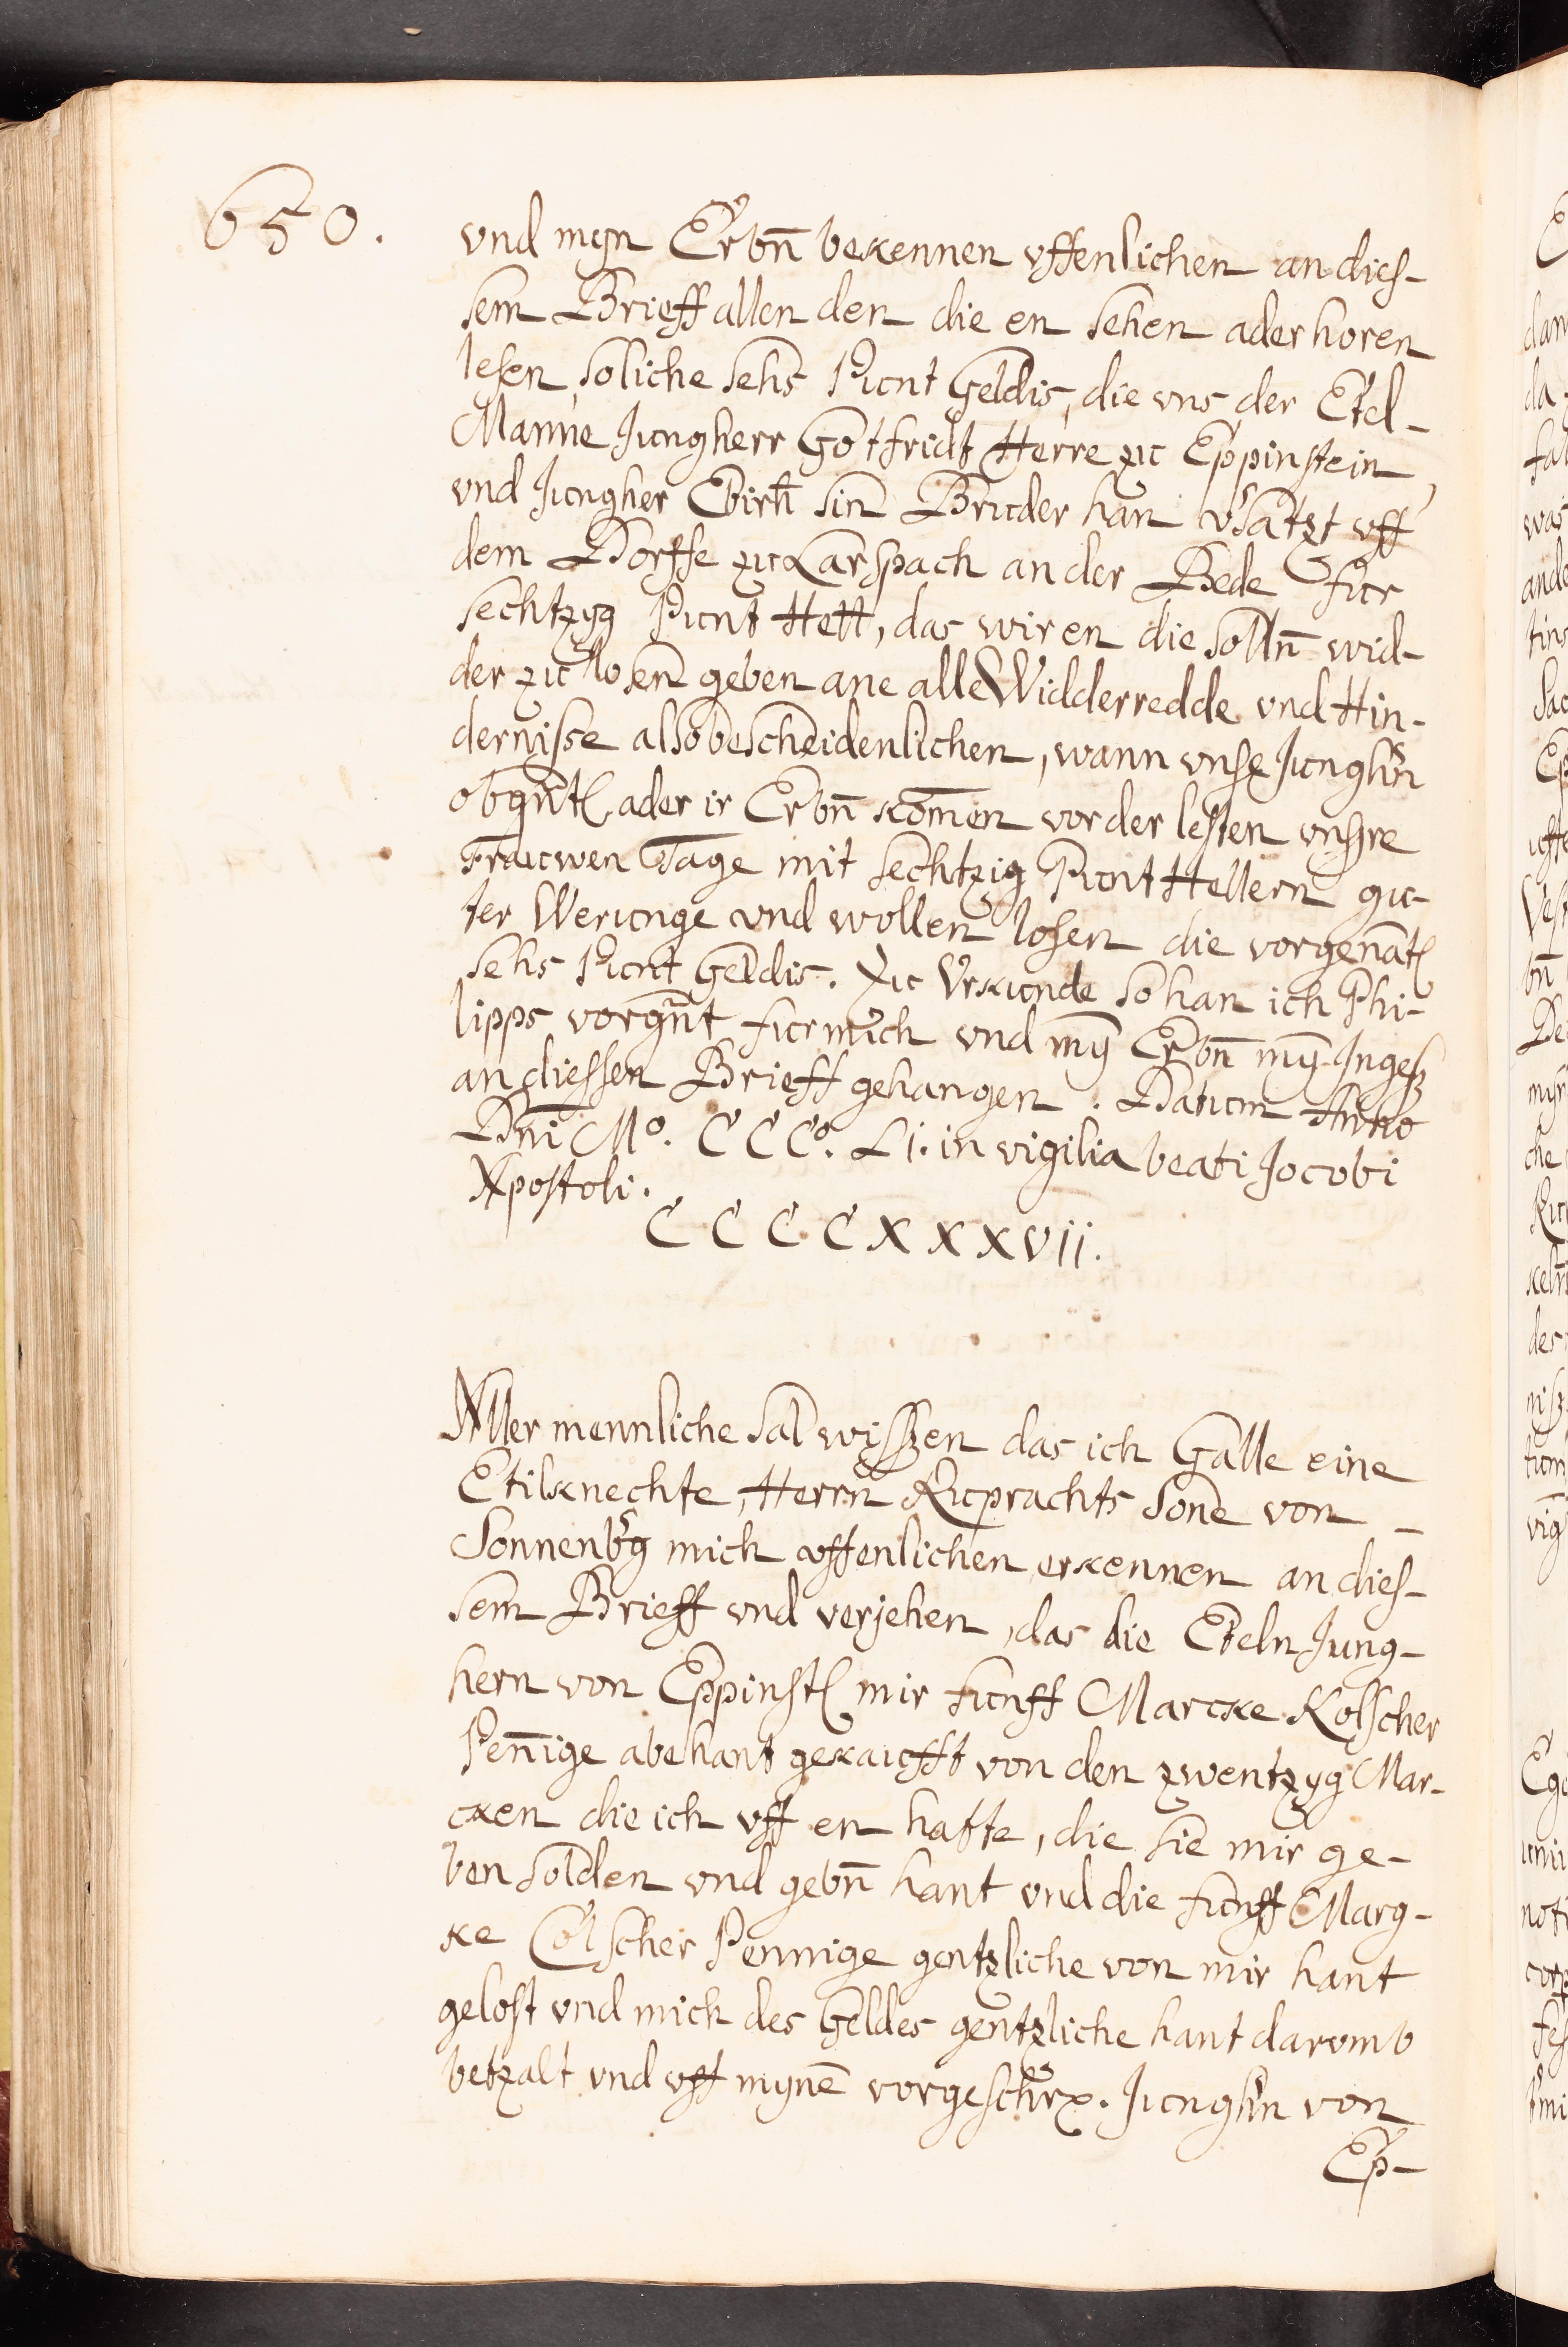 650.
vnd myn Erbn̄ bekennen vffenlichen an dieß-
sem Brieff allen den die en sehen ader horen
lesen, soliche sehs Punt Geldis, die vns der Etel-
Manne Jungherr Gotfridt Herre zu Eppinstein,
vnd Jungher Ebirh̄ sin Bruder han v'satzt vff
dem Dorffe zu Larspach an der Bede fur
sechtzyg Punt Hell, das wir en die solln̄ wid-
der zu losen geben ane alle Widderredde vnd Hin-
dernisse also bescheidenlichen, wann vnse Junghn̄
obgn̄t ader ir Erbn̄ kom̄en vor der lesten vnsre
Frauwen Tage mit sechtzig Punt Hellern gu-
ter Werunge vnd wollen losen die vorgenāt
sehs Punt Geldis. Zu Vrkunde so han ich Phi-
lipps vorgn̄t fur mich vnd mȳ Erbn̄ mȳ Ingeß
an diessen Brieff gehangen. Datum Anno
Dn̄i Mº. CCCº. Lj. in vigilia beati Jocobi
Apostoli.
CCCCXXXVII.
Aller mennliche sal wissen das ich Galle eine
Etilknechte, Herrn Ruprachts Sone von -
Sonnenb'g mich vffenlichen erkennen an dieß-
sem Brieff vnd verjehen, das die Eteln Jung-
hern von Eppinst mir funff Marcke Kolscher
Pen̄ige abe hant gekaufft von den zwentzyg Mar-
cken die ich vff en hatte, die sie mir ge-
ben solden vnd gebn̄ hant vnd die funff Marg-
ke Colscher Pennige gentzliche von mir hant
gelost vnd mich des Geldes gentzliche hant darvmb
betzalt vnd vff mynē vorgeschr. Junghn̄ von
Ep-